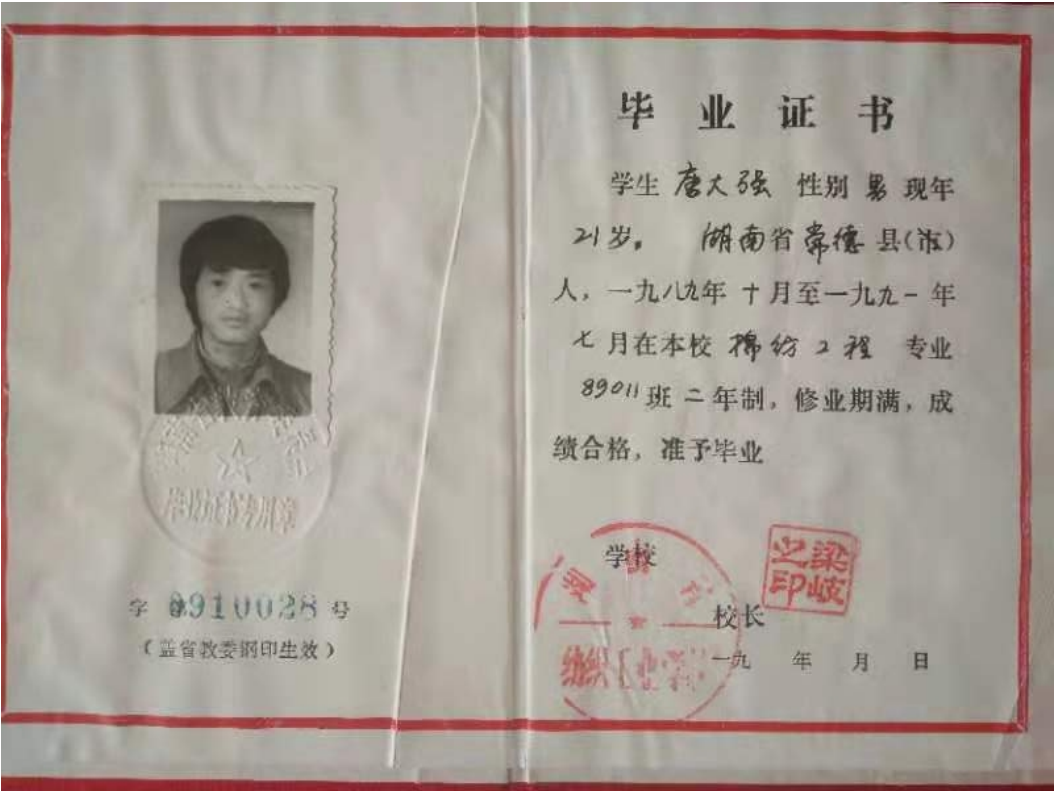 毕业证书
学生 唐大强 性别 男 现年
21岁。 湖南省常德县(市)
人，一九八九年十月至一九九一年
七月在本校棉纺工程 专业
89011班二年制，修业期满，成
绩合格，准予毕业
学校
梁岐之印
校长
一九 年 月 日
毕业证书专用章
字 第910028号
(盖省教委钢印生效)